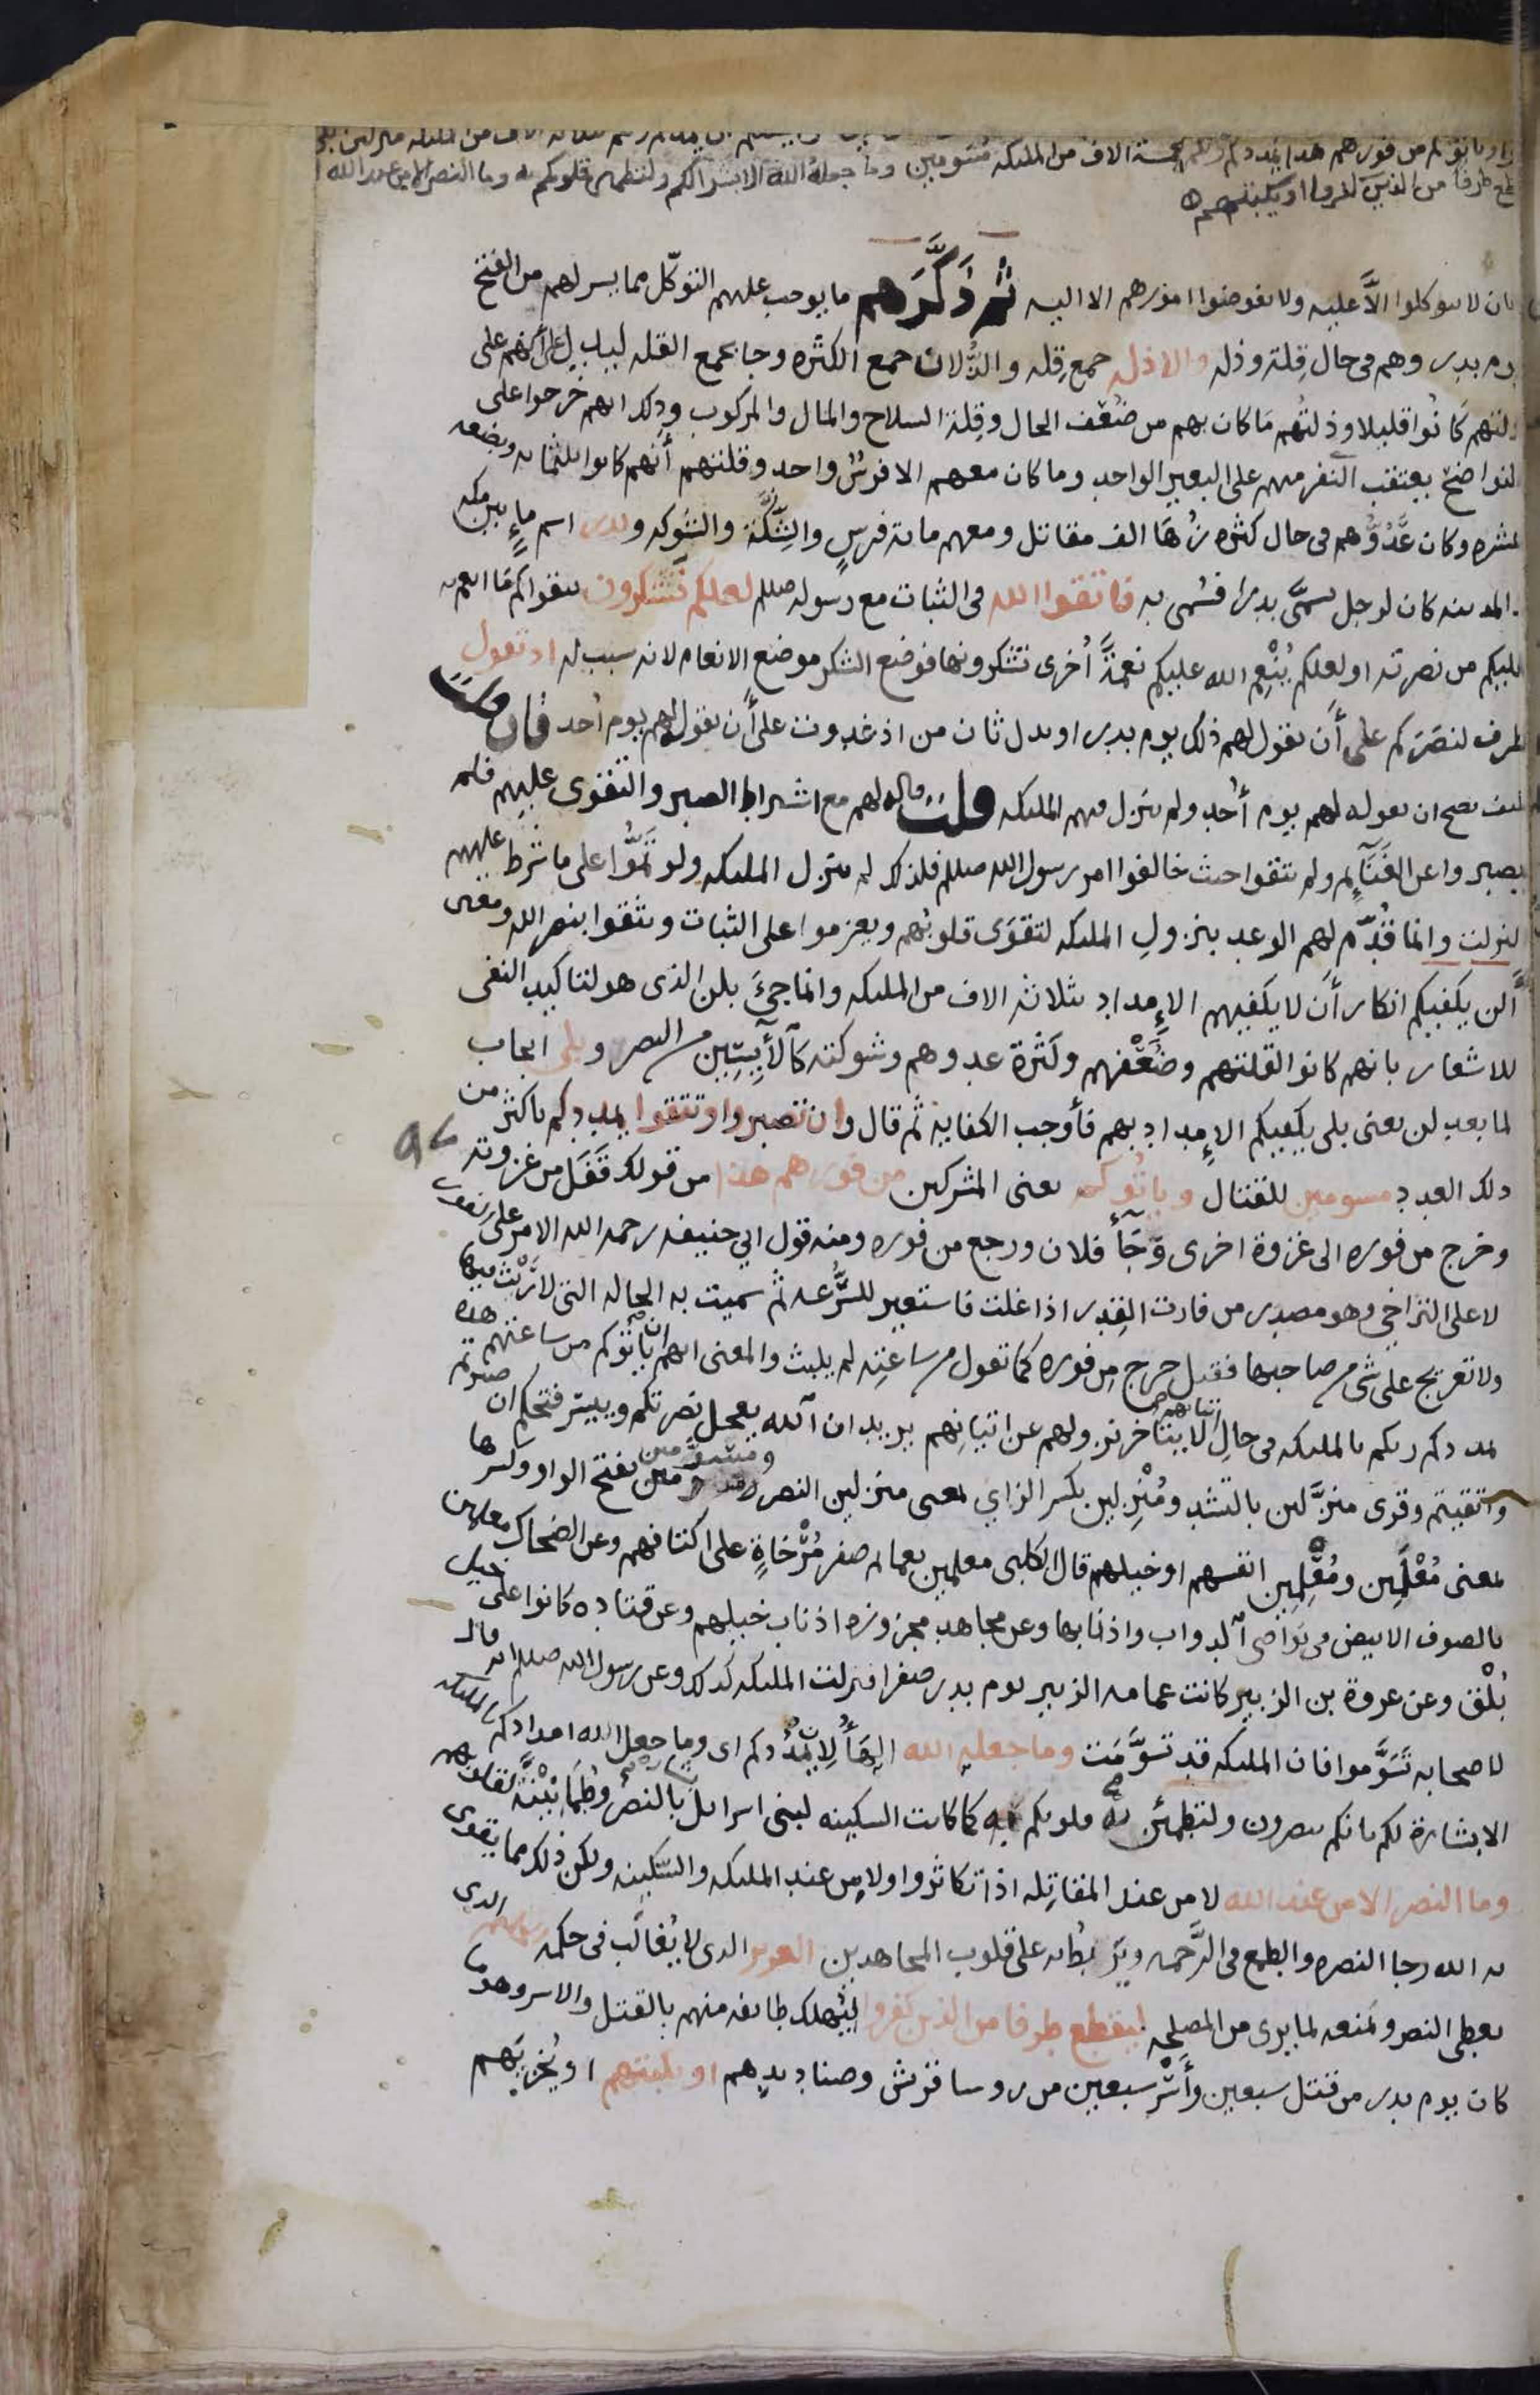 وياتوكم من فورهم هذا يمددكم ربكم بخمسة الاف من الملئكه مسومين وما جعله الله الا بشرى لكم ولتطمئن قلوبكم به وما النصر الا من عند الله
طرفا من الذين كفروا او يكبتهم
بان لا يتوكلوا الَّا عليه ولا يفوضوا امورهم الا اليه ثم ذَكَّرَهم ما يوجب عليهم التوكّل مما يسر لهم من الفتح
بدر وهم فى حال قِلة وذله والاذله جمع قِله والذُلان جمع الكثره وجا بجمع القله ليدل على أنهم على
ذلتهم كانُوا قليلا وذلتُهم مَا كان بهم من ضُعْف الحال وقِلة السلاح والمال والمركوب وذلك انهم خرجوا على
النواضح يعتقب النفر منهم على البعير الواحد وما كان معهم الا فرسٌ واحد وقلتهم أنهم كانوا ثلثمائه وبضعه
عشره وكان عَدُوُّهم فى حال كثره زُهَا الف مقاتل ومعهم مائة فرسٍ والشِّكَّة والشَوكه وبدر اسم ماءٍ بين مكه
والمدينه كان لرجل يسمَّى بدرًا فسُمى به فاتقوا الله فى الثبات مع رسوله صلعم لعلكم تشكرون بتقواكم مَا انعم به
عليكم من نصرته او لعلكم يُنْعِم الله عليكم نعمَةً أخرى تشكرونها فوضع الشكر موضع الانعام لانه سبب له اذ تقول
ظرف لنصَرَكم على أن يقول لهم ذلك يوم بدر او بدل ثان من اذ غدوت على أن يقول لهم يوم أحد فان قلت
كيف يصح ان يقوله لهم يوم أُحد ولم ينزل فيهم الملئكه قلت قاله لهم مع اشتراط الصبر والتقوى عليهم فلم
يصبروا عن الغَنَآئِم ولم يتقوا حيث خالفوا امر رسول الله صلعم فلذلك لم ينزل الملئكه ولو تمُّوا على ما شرط عليهم
لنزلت وانما قُدِّم لهم الوعد بنزولِ الملئكه لتقوَى قلوبُهم ويعزموا على الثبات ويثقوا بنصر الله ومعنى
أَلن يكفيكم انكار أَن لا يكفيهم الإمداد بثلاثه الاف من الملئكه وانما جئَ بلن الذى هو لتاكيد النفى
للاشعار بانهم كانوا لقلتهم وضُعْفهم وكَثرة عدوهم وشوكته كَالآيِسين من النصر وبلى ايجاب
لما بعد لن يعنى بلى يكفيكم الإمداد بهم فأوجب الكفاية ثم قال وان تصبروا وتتقوا يمددكم باكثر من
ذلك العدد مسومين للقتال وياتُوكم يعنى المشركين من فورهم هذا من قولك قَفَل من غزوته
وخرج من فوره الى غزوة اخرى وَجَآء فلان ورجع من فوره ومنه قول ابي حنيفه رحمه الله الامر على الفور
لا على التراخي وهو مصدر من فارت القِدر اذا غلت فاستعير للسُّرعه ثم سميت به الحاله التى لا رَيْثَ فيها
ولا تعريج على شى من صاحبها فقيل خرج من فوره كما تقول من ساعتِه لم يلبث والمعنى انهم ان يأتُوكم من ساعتهم هذه
يمددكم ربكم بالملئكه فى حالِ اتيانهم لا يتأخر نزولهم عن اتيانِهم يريد ان الله يعجل نصرتكم وييسر فتحكم ان صبرتم
واتقيتم وقرى منزَّلين بالتشديد ومُنْزِلين بكسر الزاي بمعنى منزلين النصر ومسوَّمين بفتح الواو وكسرها
بمعنى مُعْلَمين ومُعْلِمين انفسهم او خيلهم قال الكلبى معلمين بعمائم صفر مُرْخاةٍ على اكتافهم وعن الضحاك معلمين
بالصوف الابيض فى نواصى الدواب واذنابها وعن مجاهد مجزوزه اذناب خيلهم وعن قتاده كانوا على خيل
بُلْق وعن عروة بن الزبير كانت عمامه الزبير يوم بدر صفرا فنزلت الملئكه كذلك وعن رسول الله صلعم انه قال
لاصحابه تَسَوَّموا فان الملئكه قد تسوَّمَت وما جعله الله الهَآءُ لِان يُمدُّكم اى وما جعل الله امدادكم بالملئكه
الا بشارة لكم بانكم تنصرون ولتطمئن به قلوبكم كما كانت السكينه لبنى اسرائل بشارةً بالنصر وطمَأنِيْنَةً لقلوبهم
وما النصر الا من عند الله لا من عند المقاتِله اذا تكاثروا ولا من عند الملئكه والسَّكينه ولكن ذلك مما يقوى
به الله رجا النصره والطمع فى الرَّحمه ويَربطُ به على قلوب المجاهدين العزيز الذى لا يُغالَب فى حكمه الحكيم الذى
يعطى النصر ويمنعه لما يرى من المصلحه ليقطع طرفا من الذين كفروا ليُهلك طائفه منهم بالقتل والاسر وهو ما
كان يوم بدر من قتل سبعين وأَسْر سبعين من روسا قريش وصناديدِهم او يكبتهم او يُخزيَهم